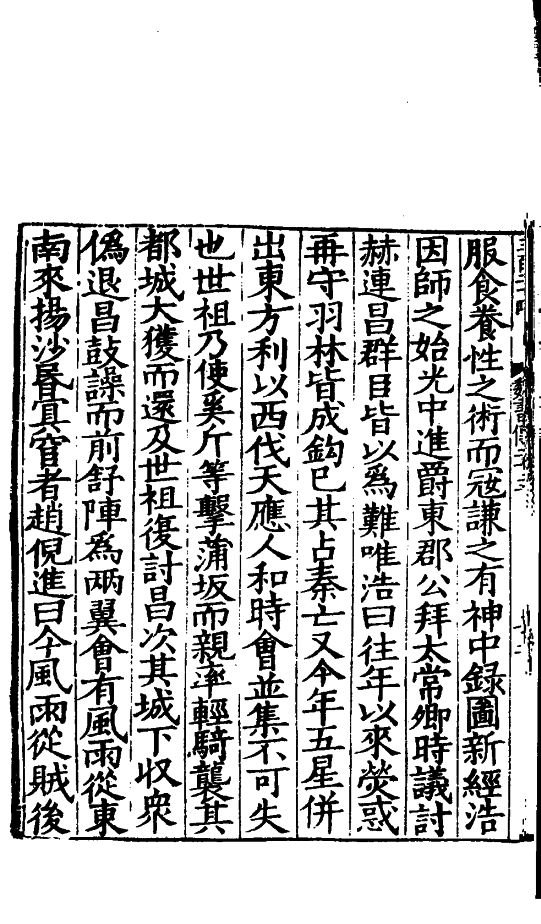 服食養性之術而寇謙之有神中録圖新經浩
因師之始光中進爵東郡公拜太常卿時議討
赫連昌群臣皆以爲難唯浩曰往年以來熒惑
再守羽林皆成鈎巳其占秦亡又今年五星併
出東方利以西伐天應人和時會並集不可失
也世祖乃使奚斤等擊蒲坂而親率輕騎襲其
都城大獲而還及世祖復討昌次其城下收衆
僞退昌鼓譟而前舒陣爲兩翼會有風雨從東
南來揚沙昏冥宦者趙倪進曰今風雨從賊後